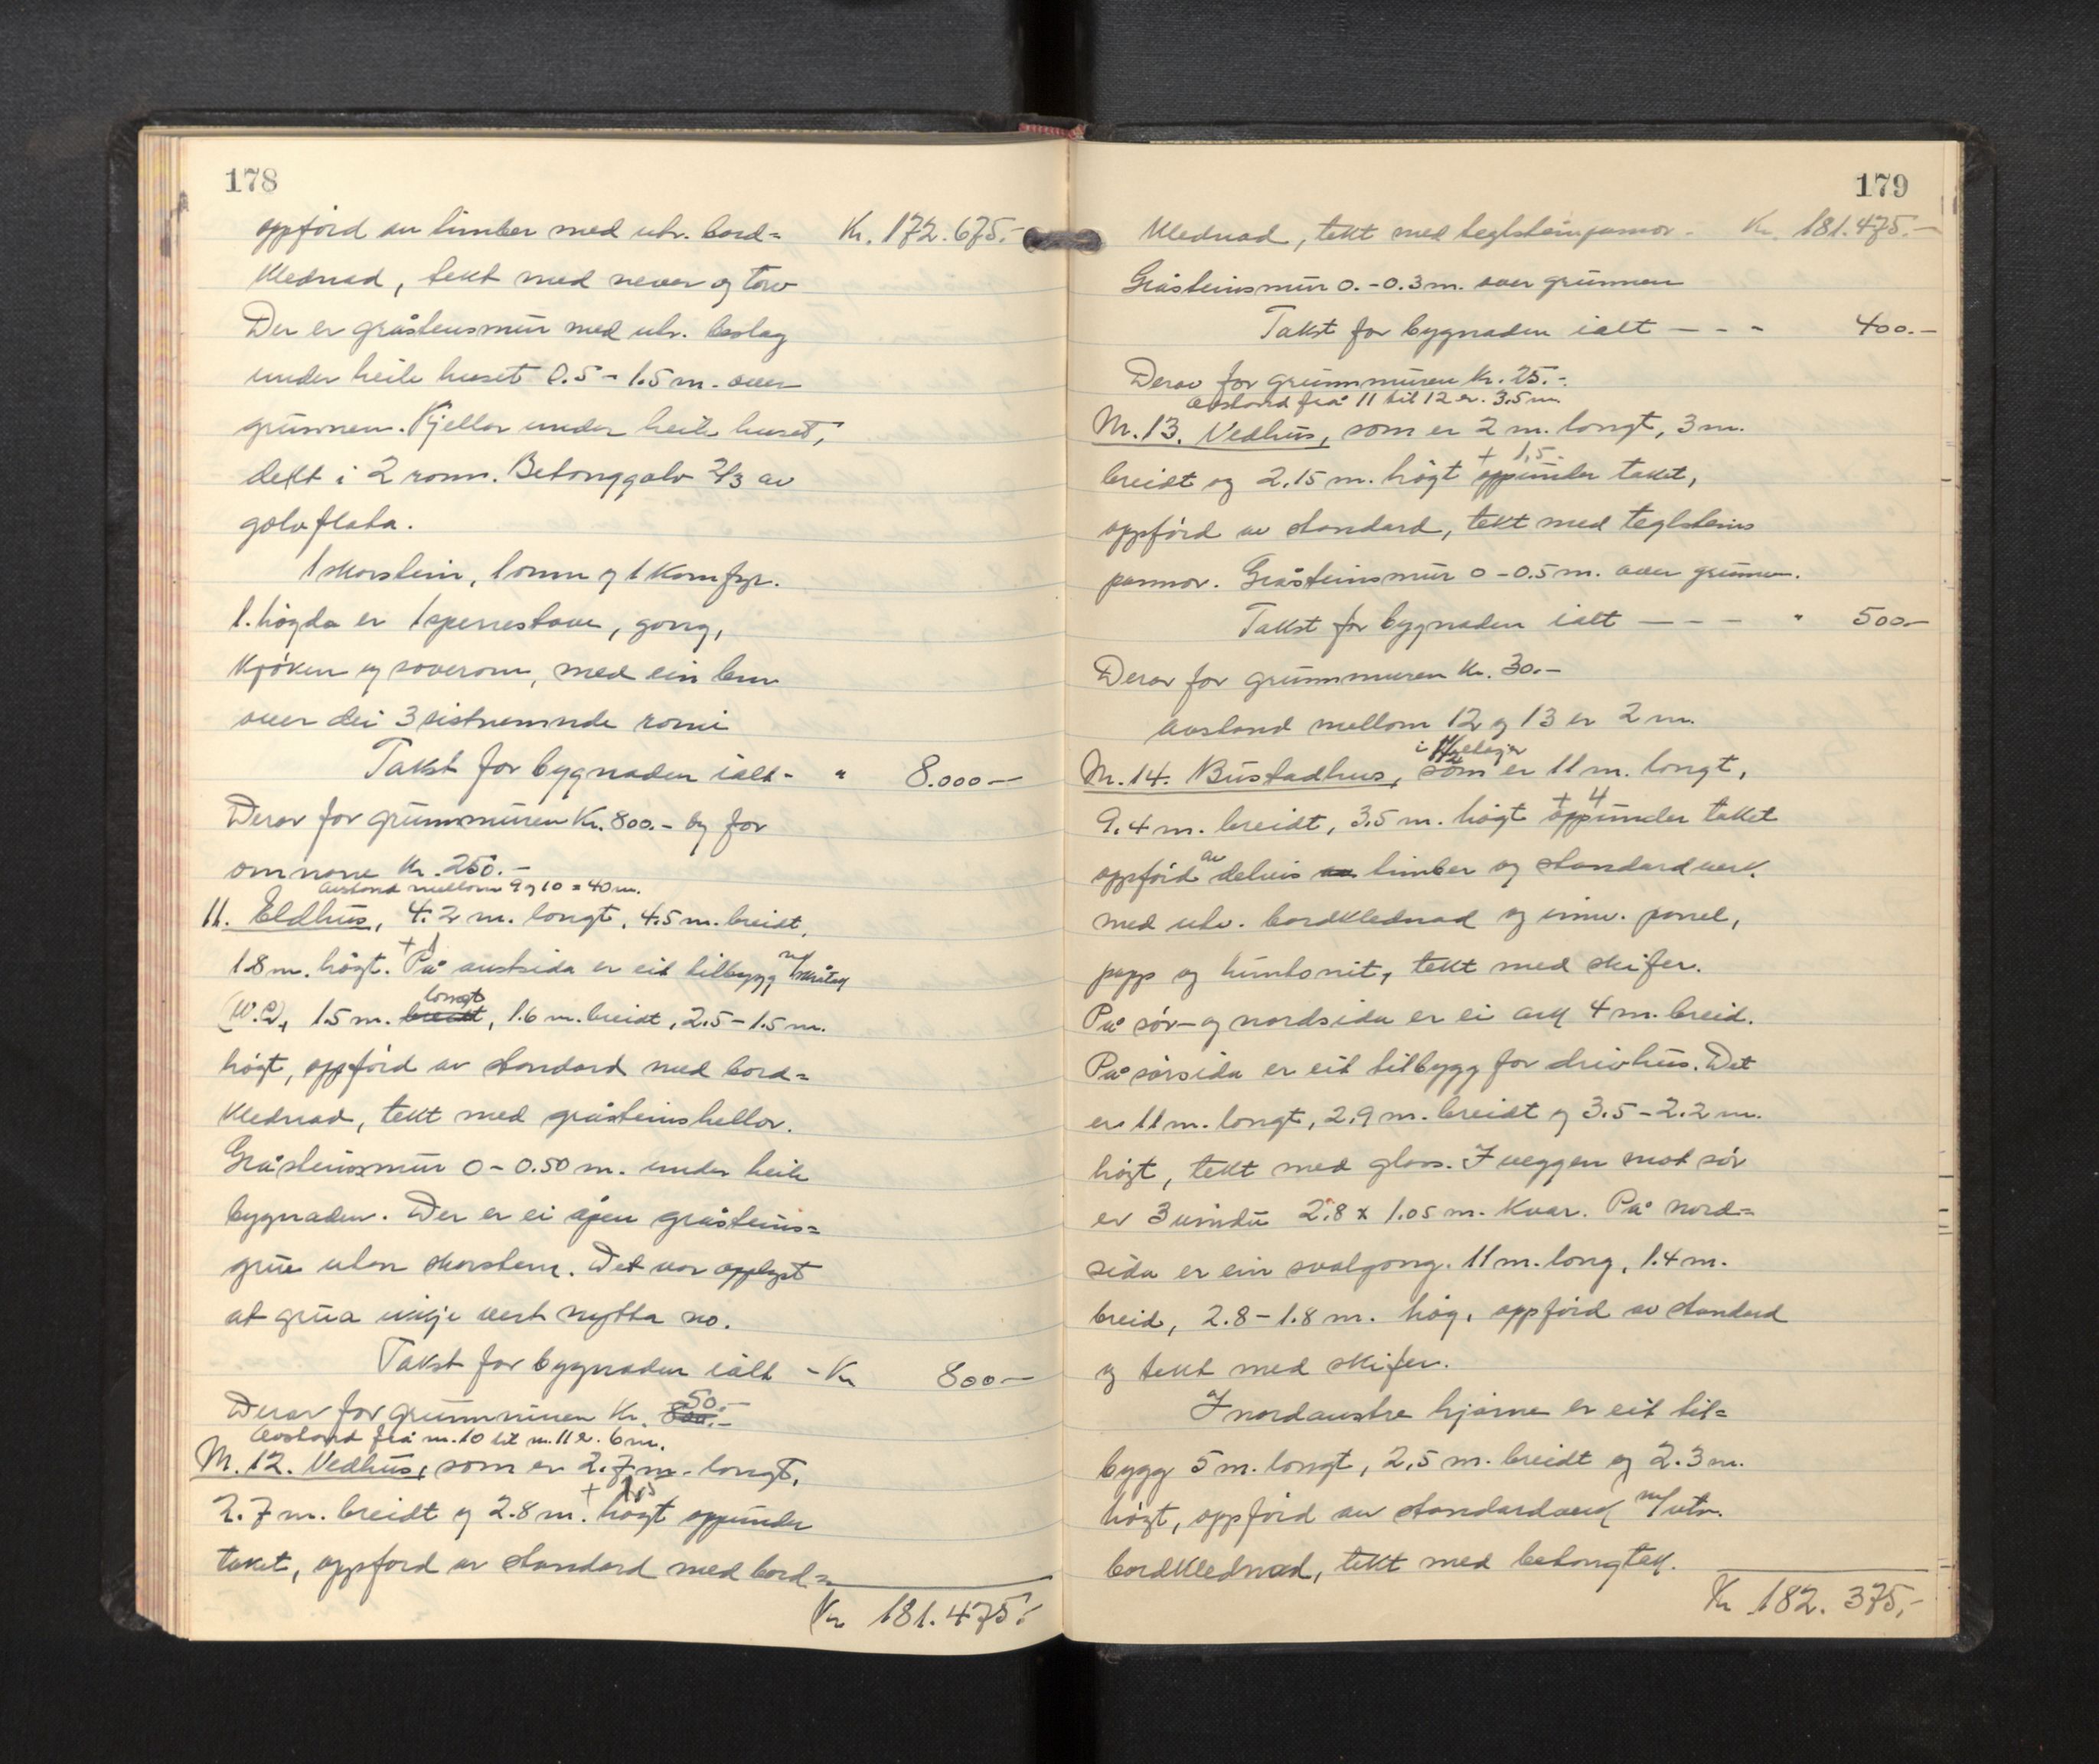 178
oppförd av timber med utv. bord= Kr. 172.675.-
klednad, tekt med never og torv
Der er gråsteinsmur med utv. beslag
under heile huset 0.5 - 1.5 m. over
grunnen. Kjellar under heile huset,
delt i 2 rom. Betonggolv 2/3 av
golvflata.
1 skorstein, 1 omn og 1 komfyr.
1. högda er 1 sperrestove, gong,
kjöken og soverom, med ein lem
over dei 3 sistnemnde romi
Takst for bygnaden ialt - " 8.000 —
Derav for grunnmuren Kr. 800.- og for
omnane Kr. 250.-
Avstand mellom 9 og 10 = 40 m.
11. Eldhus, 4.2 m. longt, 4.5 m. breidt,
1.8 m. högt. + 1 På austsida er eit tilbygg m/skråtak
(W.C), 1.5 m. breidt longt, 1.6 m. breidt, 2.5 - 1.5 m.
högt, oppförd av standard med bord=
klednad, tekt med gråsteinshellor.
Gråsteinsmur 0 - 0.50 m. under heile
bygnaden. Der er ei åpen gråsteins=
grue uten skorstein. Det var opplyst
at grua ikkje vert nytta no.
Takst for bygnaden ialt - Kr 800 —
Derav for grunnmuren Kr. 800.- 50.-
Avstand frå nr. 10 til nr. 11 er. 6 m.
Nr. 12. Vedhus, som er 2.7 m. longt,
2.7 m. breidt og 2.8 m. + 1,5 högt oppunder
taket, oppförd av standard med bord=
Kr 181.475.-
179
klednad, tekt med teglsteinpannor. Kr. 181.475.-
Gråsteinsmur 0. - 0.3 m. over grunnen
Takst for bygnaden ialt — - - 400.-
Derav for grunnmuren Kr. 25.-
Avstand frå 11 til 12 er. 3.5 m
Nr. 13. Vedhus, som er 2 m. longt, 3 m.
breidt og 2.15 m. högt + 1,5 oppunder taket,
oppförd av standard, tekt med teglsteins
pannor. Gråsteinsmur 0 - 0.5 m. over grunnen.
Takst for bygnaden ialt — — — " 500.-
Derav for grunnmuren Kr. 30.-
Avstand mellom 12 og 13 er 2 m.
Nr. 14. Bustadhus, i 1 1/2 etasjer som er 11 m. longt,
9.4 m. breidt, 3.5 m. högt + 4 oppunder taket
oppförd av delvis av timber og standardverk.
med utv. bordklednad og innv. panel,
papp og huntonit, tekt med skifer.
På sör- og nordsida er ei ark 4 m. breid.
På sörsida er eit tilbygg for drivhus. Det
er 11 m. longt, 2.9 m. breidt og 3.5 - 2.2 m.
högt, tekt med glas. I veggen mot sör
er 3 vindu 2.8 x 1.05 m. kvar. På nord=
sida er ein svalgong. 11 m. long, 1.4 m.
breid, 2.8 - 1.8 m. hög, oppförd av standard
og tekt med skifer.
I nordaustre hjörne er eit til=
bygg 5 m. longt, 2,5 m. breidt og 2.3 m.
högt, oppförd av standardverk m/utv.
bordklednad, tekt med betongtak.
Kr 182.375,-